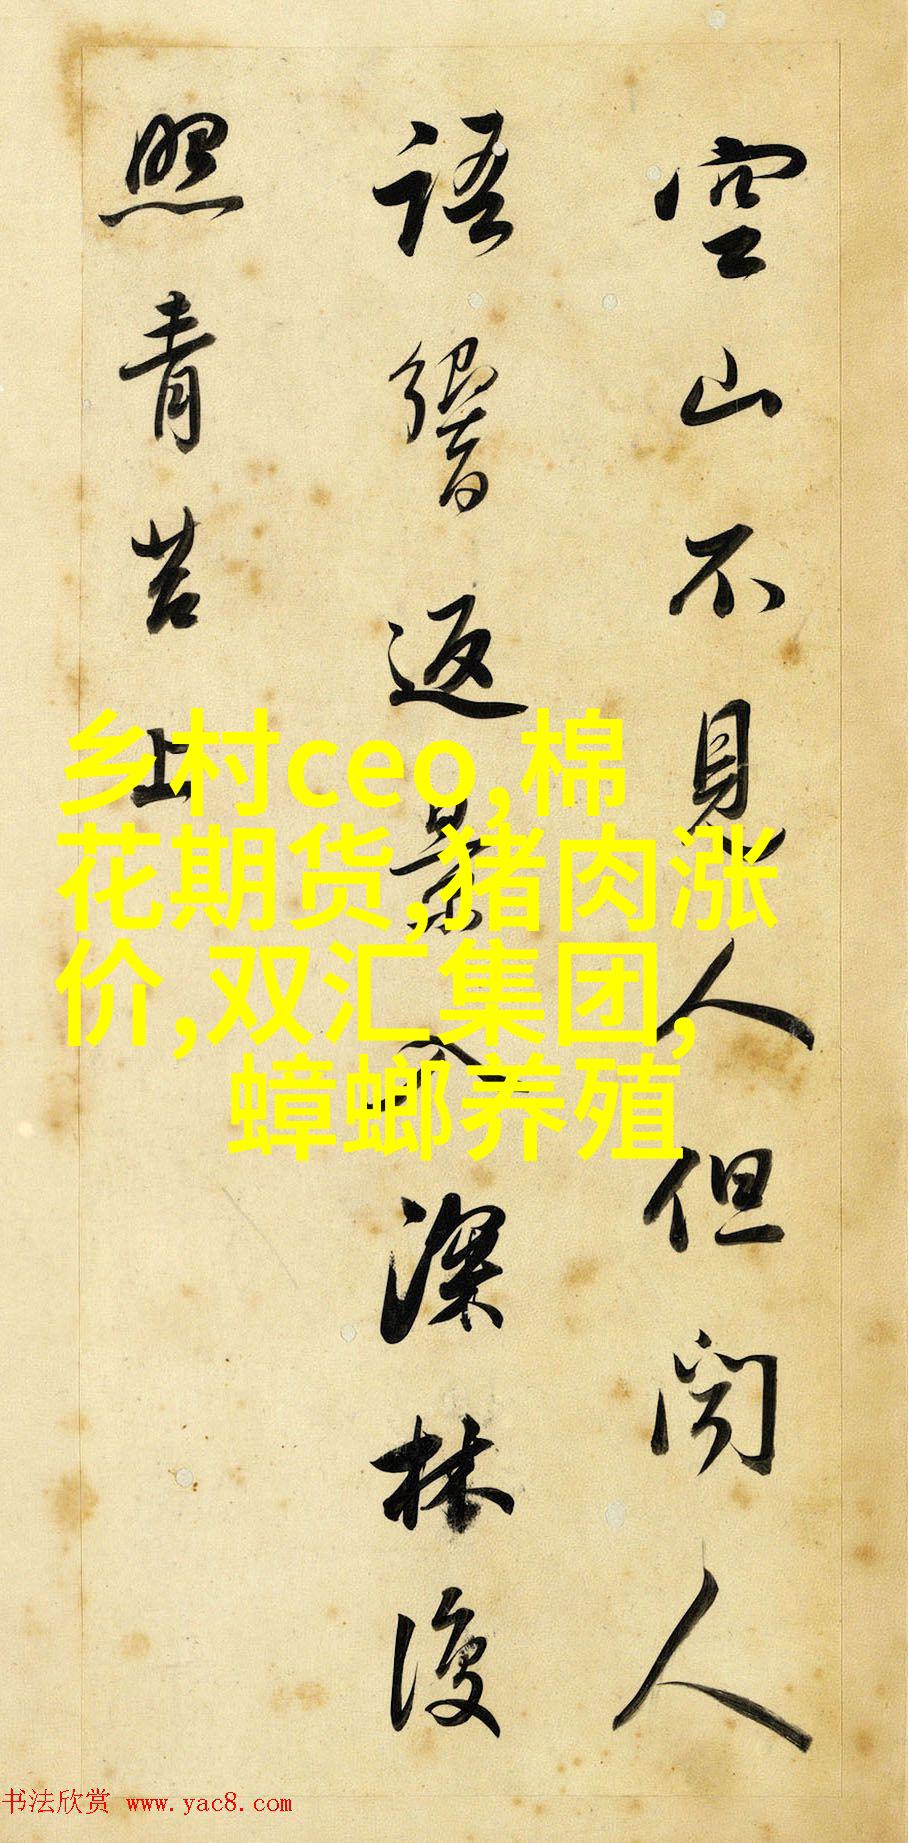 空山不見人但聞人
語響返景入深林復
照青苔上
乡村ceo,棉
花期货,猪肉涨
价,双汇集团,
蟑螂养殖
书法欣赏 www.yac8.com